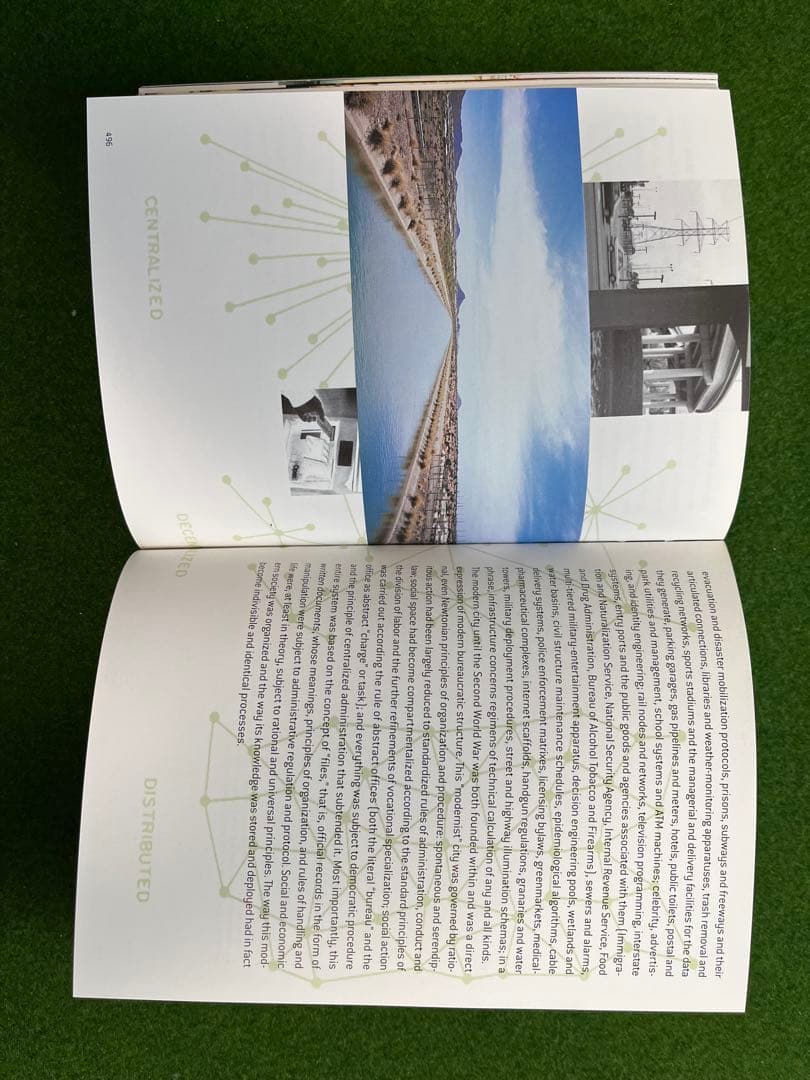 496
CENTRALIZED
DECENTRALIZED
evacuation and disaster mobilization protocols, prisons, subways and freeways and their
articulated connections, libraries and weather-monitoring apparatuses, trash removal and
recycling networks, sports stadiums and the managerial and delivery facilities for the data
they generate, parking garages, gas pipelines and meters, hotels, public toilets, postal and
park utilities and management, school systems and ATM machines; celebrity, advertis-
ing, and identity engineering; rail nodes and networks, television programming, interstate
systems, entry ports and the public goods and agencies associated with them (Immigra-
tion and Naturalization Service, National Security Agency, Internal Revenue Service, Food
and Drug Administration, Bureau of Alcohol Tobacco and Firearms), sewers and alarms,
multi-tiered military-entertainment apparatus, decision engineering pools, wetlands and
water basins, civil structure maintenance schedules, epidemiological algorithms, cable
delivery systems, police enforcement matrixes, licensing bylaws, greenmarkets, medical-
pharmaceutical complexes, internet scaffolds, handgun regulations, granaries and water
towers, military deployment procedures, street and highway illumination schemas; in a
phrase, infrastructure concerns regimens of technical calculation of any and all kinds.
The modern city until the Second World War was both founded within and was a direct
expression of modern bureaucratic structure. This "modernist" city was governed by ratio-
nal, even Newtonian principles of organization and procedure: spontaneous and serendip-
itous action had been largely reduced to standardized rules of administration, conduct and
law; social space had become compartmentalized according to the standard principles of
the division of labor and the further refinements of vocational specialization; social action
was carried out according the rule of abstract offices (both the literal "bureau" and the
office as abstract "charge" or task); and everything was subject to democratic procedure
and the principle of centralized administration that subtended it. Most importantly, this
entire system was based on the concept of "files," that is, official records in the form of
written documents, whose meanings, principles of organization, and rules of handling and
manipulation were subject to administrative regulation and protocol. Social and economic
life were, at least in theory, subject to rational and universal principles. The way this mod-
ern society was organized and the way its knowledge was stored and deployed had in fact
become indivisible and identical processes.
DISTRIBUTED